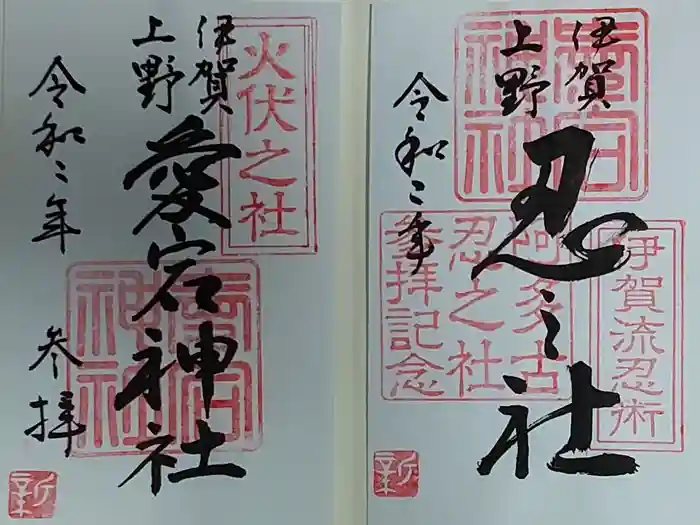 火伏之社
伊賀
上野
愛宕神社
令和二年
参拝
愛宕
神社
新
伊賀
上野
忍之社
令和二年
愛宕
神社
伊賀流忍術
阿多古
忍之社
参拝記念
新